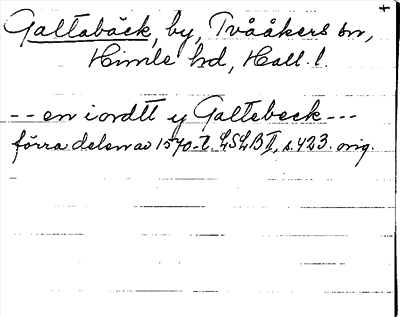 Galtabäck, by, Tvååkers sn,
Himle hd, Hall. l.
-- en iordtt y Galtebeck ---
förra delen av 1570-t. LSLB II, s. 423. orig.